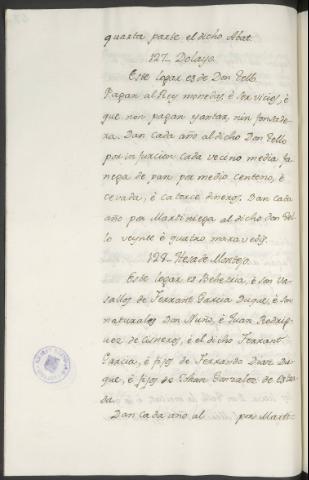 quarta parte el dicho Abat.
127_ Dolayo
Este logar es de Don Tello
Pagan al Rey monedas, è servicios, è
que non pagan yantar, nin fonsade-
ra. Dan cada año al dicho Don Tello
por infurcion cada veceno media fa-
nega de pan por medio centeno, è
cevada, è catorce dineros. Dan cada
año por Martiniega al dicho don Te-
llo veynte è quatro maravedis.
128_ Hesa de Montejo.
Este logar es Behetria, è son Va-
sallos de Ferrant Garcia Duque, è son
naturales Don Nuño, è Juan Rodri-
guez de Cisneros, è el dicho Ferrant
Garcia, è fijos de Ferrando Diaz Du-
que, è fijos de Gonzalez de
da.
Dan cada año al por Marti-